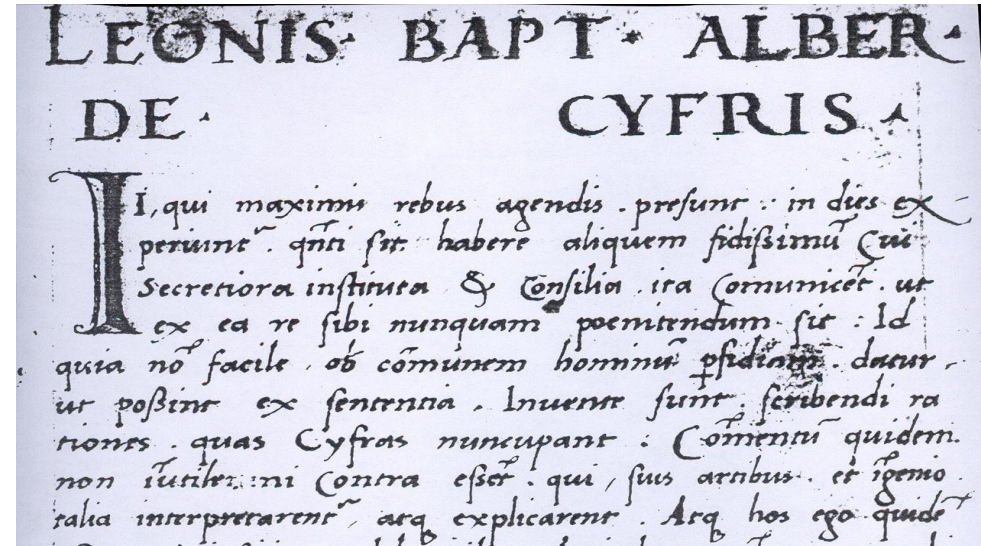 LEONIS · BAPT · ALBER ·
DE · CYFRIS ·
II, qui maximis rebus agendis . presunt : in dies ex
periunt͂ . qn̄ti sit habere aliquem fidißimū Cui
Secretiora instituta & Consilia . ita Comunicet̄ . ut
ex ea re sibi nunquam poenitendum sit : Id
quia nō facile . ob cōmunem hominū ꝑfidiam . datur ,
ut poßint ex sententia . Invente sunt scribendi ra
tiones . quas Cyfras nuncupant : Cōmentū quidem .
non īutile : ni Contra esset̄ . qui , suis artibus . et īgenio .
talia interpretarent͂ , atq explicarent . Atq hos ego quidē